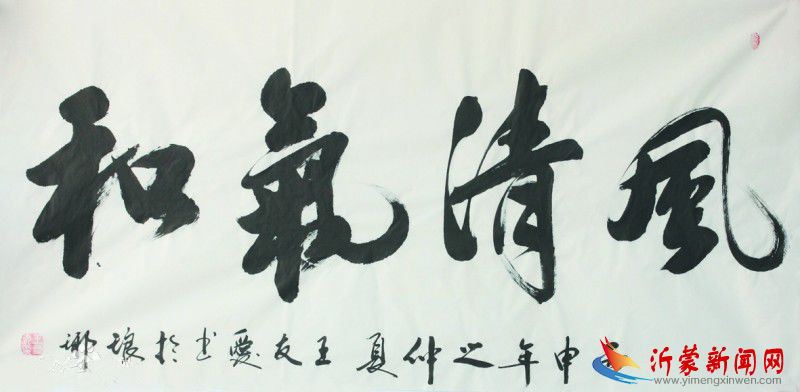 風清氣和
申年之仲夏 王友愛書於琅琊
沂蒙新闻网
www.yimengxinwen.com